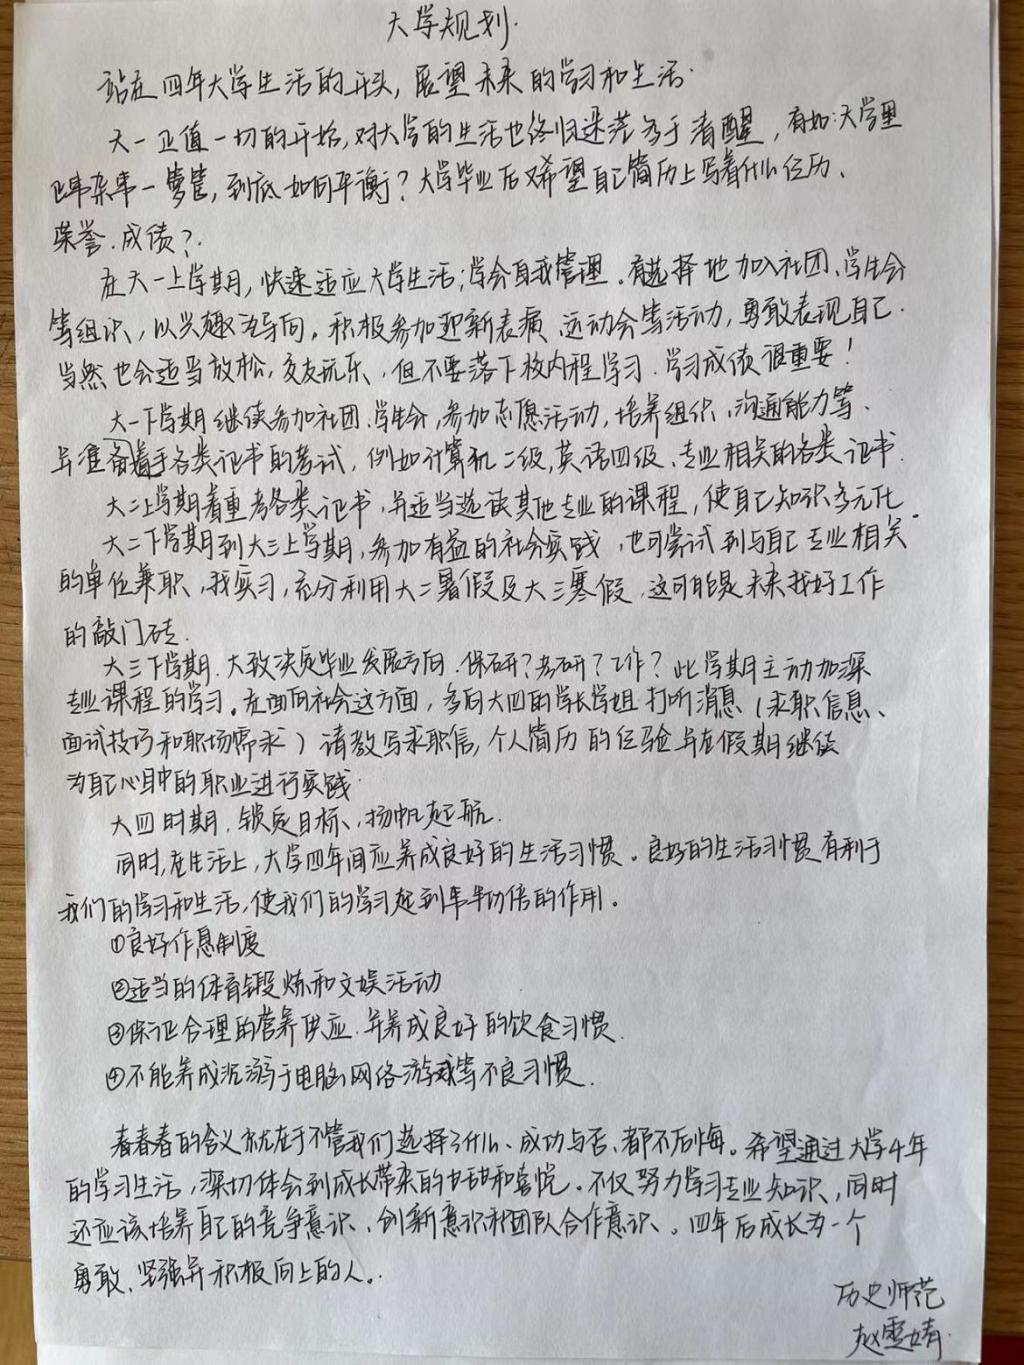 大学规划.
站在四年大学生活的开头，展望未来的学习和生活.
大一正值一切的开始，对大学的生活也终归迷茫多于清醒，有如：大学里
杂事一箩筐，到底如何平衡？大学毕业后又希望自己简历上写着什么经历、
荣誉、成绩？
在大一上学期，快速适应大学生活；学会自我管理。有选择地加入社团、学生会
等组织，以兴趣为导向。积极参加迎新表演、运动会等活动，勇敢表现自己.
当然也会适当放松，交友玩乐、但不要落下校内课程学习.学习成绩很重要！
大一下学期继续参加社团、学生会，参加志愿活动，培养组织、沟通能力等、
并准备着手各类证书的考试，例如计算机二级，英语四级、专业相关的各类证书.
大二上学期着重考各类证书，并适当选读其他专业的课程，使自己知识多元化.
大二下学期到大三上学期，参加有益的社会实践，也可尝试到与自己专业相关
的单位兼职、找实习，充分利用大二暑假及大三寒假，这可能是未来找好工作
的敲门砖.
大三下学期.大致决定毕业发展方向.保研？考研？工作？此学期主动加深
专业课程的学习。在面向社会这方面，多向大四的学长学姐打听消息（求职信息、
面试技巧和职场需求）请教写求职信，个人简历的经验并在假期继续
为自己心目中的职业进行实践.
大四时期.锁定目标、扬帆起航.
同时，在生活上，大学四年间应养成良好的生活习惯。良好的生活习惯有利于
我们的学习和生活，使我们的学习起到事半功倍的作用。
①良好作息制度
②适当的体育锻炼和文娱活动
③保证合理的营养供应.并养成良好的饮食习惯.
④不能养成沉溺于电脑网络游戏等不良习惯.
青春的含义就在于不管我们选择了什么、成功与否、都不后悔。希望通过大学4年
的学习生活，深切体会到成长带来的甘甜和喜悦。不仅努力学习专业知识，同时
还应该培养自己的竞争意识、创新意识和团队合作意识、。四年后成长为一个
勇敢、坚强并积极向上的人。
历史师范
赵雯婧.